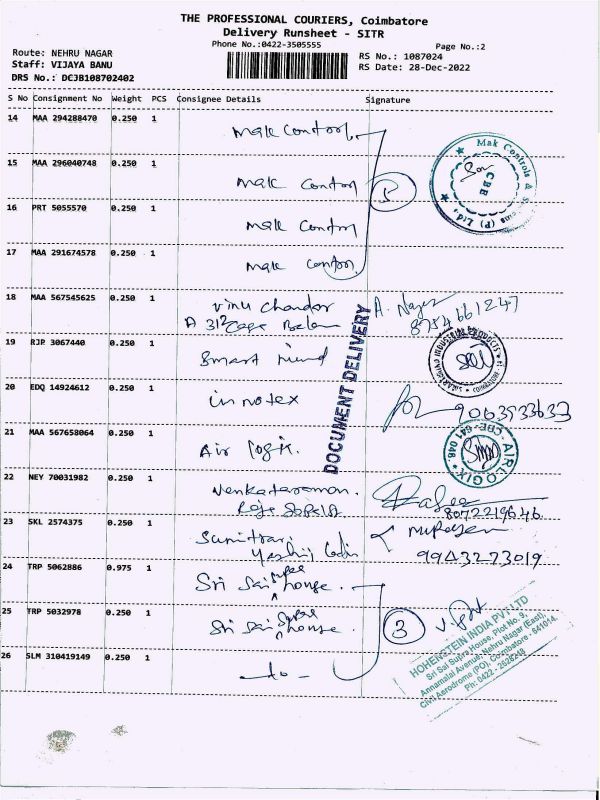 THE PROFESSIONAL COURIERS, Coimbatore
Delivery Runsheet - SITR
Phone No.:0422-3505555
Page No.:2
Route: NEHRU NAGAR
Staff: VIJAYA BANU
DRS No.: DCJB108702402
RS No.: 1087024
RS Date: 28-Dec-2022
S No Consignment No Weight PCS Consignee Details Signature
14 MAA 294288470 0.250 1 Mak Control
15 MAA 296040748 0.250 1 Mak Control
5
Mak Controls & Systems (P) Ltd.
CBE
16 PRT 5055570 0.250 1 Mak Control
17 MAA 291674578 0.250 1 Mak Control
18 MAA 567545625 0.250 1 Vinu Chander
A 312
8754661247
DOCUMENT DELIVERY
19 RJP 3067440 0.250 1 Smart
INDUSTRIAL PRODUCTS
20 EDQ 14924612 0.250 1 innotex
9063933633
21 MAA 567658064 0.250 1 Air logix.
AIRLOGIX
CBE-641 048.
22 NEY 70031982 0.250 1 Venkataraman.
8072219646
23 SKL 2574375 0.250 1 Sumitra
9943273019
24 TRP 5062886 0.975 1 Sri Sai Supre house.
25 TRP 5032978 0.250 1 Sri Sai Supre house.
3
26 SLM 310419149 0.250 1 -do-
HOHENSTEIN INDIA PVT LTD
Sri Sai Supra House, Plot No. 9,
Annamalai Avenue, Nehru Nagar (East),
Civil Aerodrome (PO), Coimbatore - 641014.
Ph: 0422 - 2628248